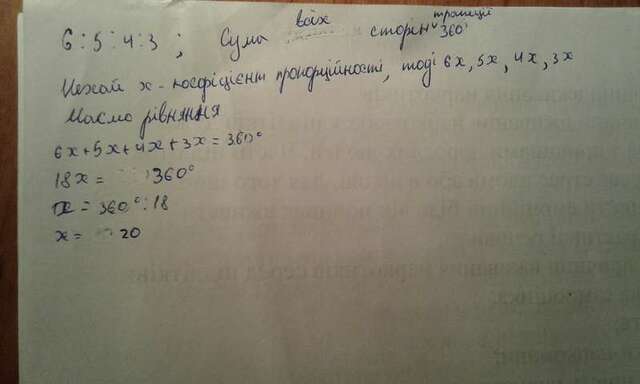 6 : 5 : 4 : 3 ; Сума всіх сторін трапеції 360°
Нехай х - коефіцієнт пропорційності, тоді 6х, 5х, 4х, 3х
Маємо рівняння
6х+5х+4х+3х=360°
18х = 360°
х = 360° : 18
х = 20